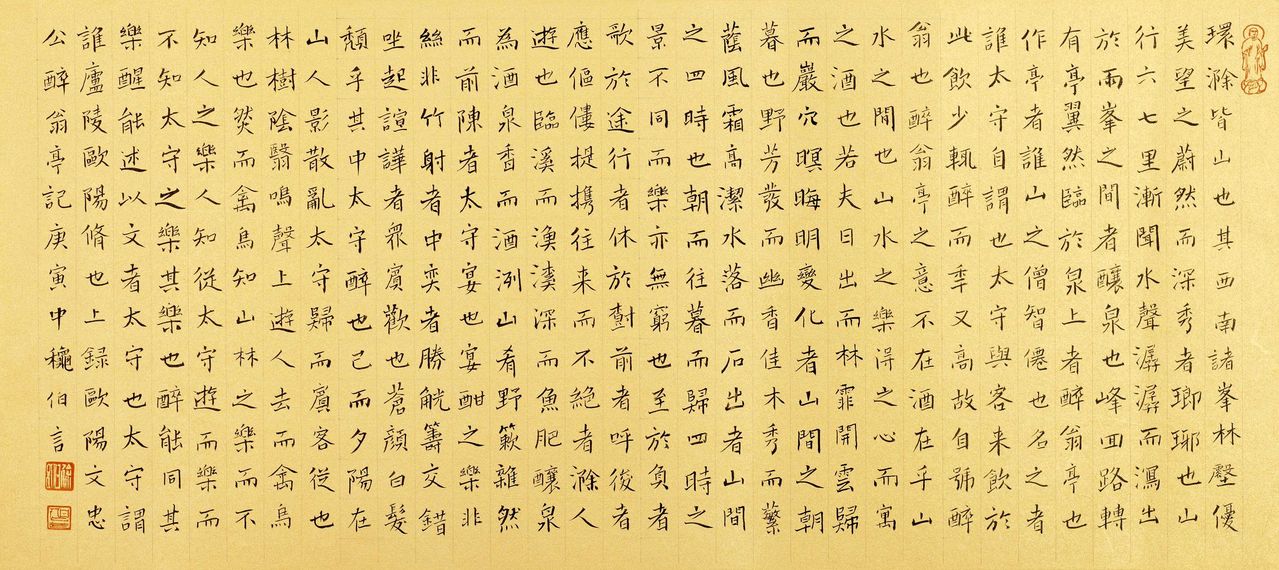 環滁皆山也其西南諸峯林壑優
美望之蔚然而深秀者瑯琊也山
行六七里漸聞水聲潺潺而瀉出
於兩峯之間者釀泉也峰回路轉
有亭翼然臨於泉上者醉翁亭也
作亭者誰山之僧智僊也名之者
誰太守自謂也太守與客来飲於
此飲少輒醉而秊又高故自號醉
翁也醉翁亭之意不在酒在乎山
水之間也山水之樂得之心而寓
之酒也若夫日出而林霏開雲歸
而巖穴暝晦明變化者山間之朝
暮也野芳發而幽香佳木秀而蘩
蔭風霜高潔水落而石出者山間
之四時也朝而往暮而歸四時之
景不同而樂亦無窮也至於負者
歌於途行者休於樹前者呼後者
應傴僂提攜往来而不絕者滁人
遊也臨溪而漁溪深而魚肥釀泉
為酒泉香而酒洌山肴野蔌雜然
而前陳者太守宴也宴酣之樂非
絲非竹射者中奕者勝觥籌交錯
坐起諠譁者衆賓歡也蒼顏白髮
頹乎其中太守醉也已而夕陽在
山人影散亂太守歸而賓客從也
林樹陰翳鳴聲上遊人去而禽鳥
樂也然而禽鳥知山林之樂而不
知人之樂人知從太守遊而樂而
不知太守之樂其樂也醉能同其
樂醒能述以文者太守也太守謂
誰廬陵歐陽脩也上録歐陽文忠
公醉翁亭記庚寅中穐伯言